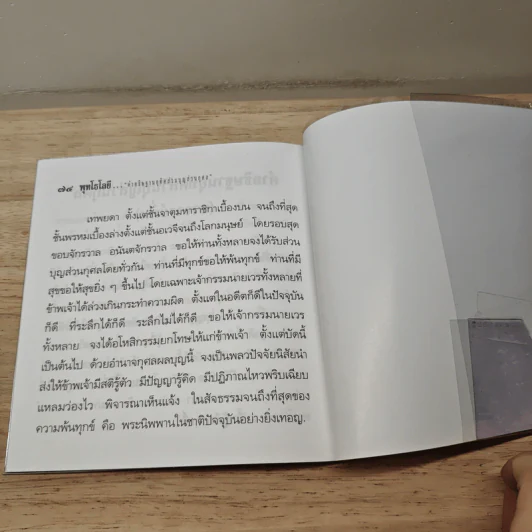 ๗๘ พุทโธโลยี...
เทพยดา ตั้งแต่ชั้นจาตุมหาราชิกาเบื้องบน จนถึงที่สุด
ชั้นพรหมเบื้องล่างตั้งแต่ชั้นอเวจีจนถึงโลกมนุษย์ โดยรอบสุด
ขอบจักรวาล อนันตจักรวาล ขอให้ท่านทั้งหลายจงได้รับส่วน
บุญส่วนกุศลโดยทั่วกัน ท่านที่มีทุกข์ขอให้พ้นทุกข์ ท่านที่มี
สุขขอให้สุขยิ่ง ๆ ขึ้นไป โดยเฉพาะเจ้ากรรมนายเวรทั้งหลายที่
ข้าพเจ้าได้ล่วงเกินกระทำความผิด ตั้งแต่ในอดีตก็ดีในปัจจุบัน
ก็ดี ที่ระลึกได้ก็ดี ระลึกไม่ได้ก็ดี ขอให้เจ้ากรรมนายเวร
ทั้งหลาย จงได้อโหสิกรรมยกโทษให้แก่ข้าพเจ้า ตั้งแต่บัดนี้
เป็นต้นไป ด้วยอำนาจกุศลผลบุญนี้ จงเป็นพลวปัจจัยนิสัยนำ
ส่งให้ข้าพเจ้ามีสติรู้ตัว มีปัญญารู้คิด มีปฏิภาณไหวพริบเฉียบ
แหลมว่องไว พิจารณาเห็นแจ้ง ในสัจธรรมจนถึงที่สุดของ
ความพ้นทุกข์ คือ พระนิพพานในชาติปัจจุบันอย่างยิ่งเทอญ.